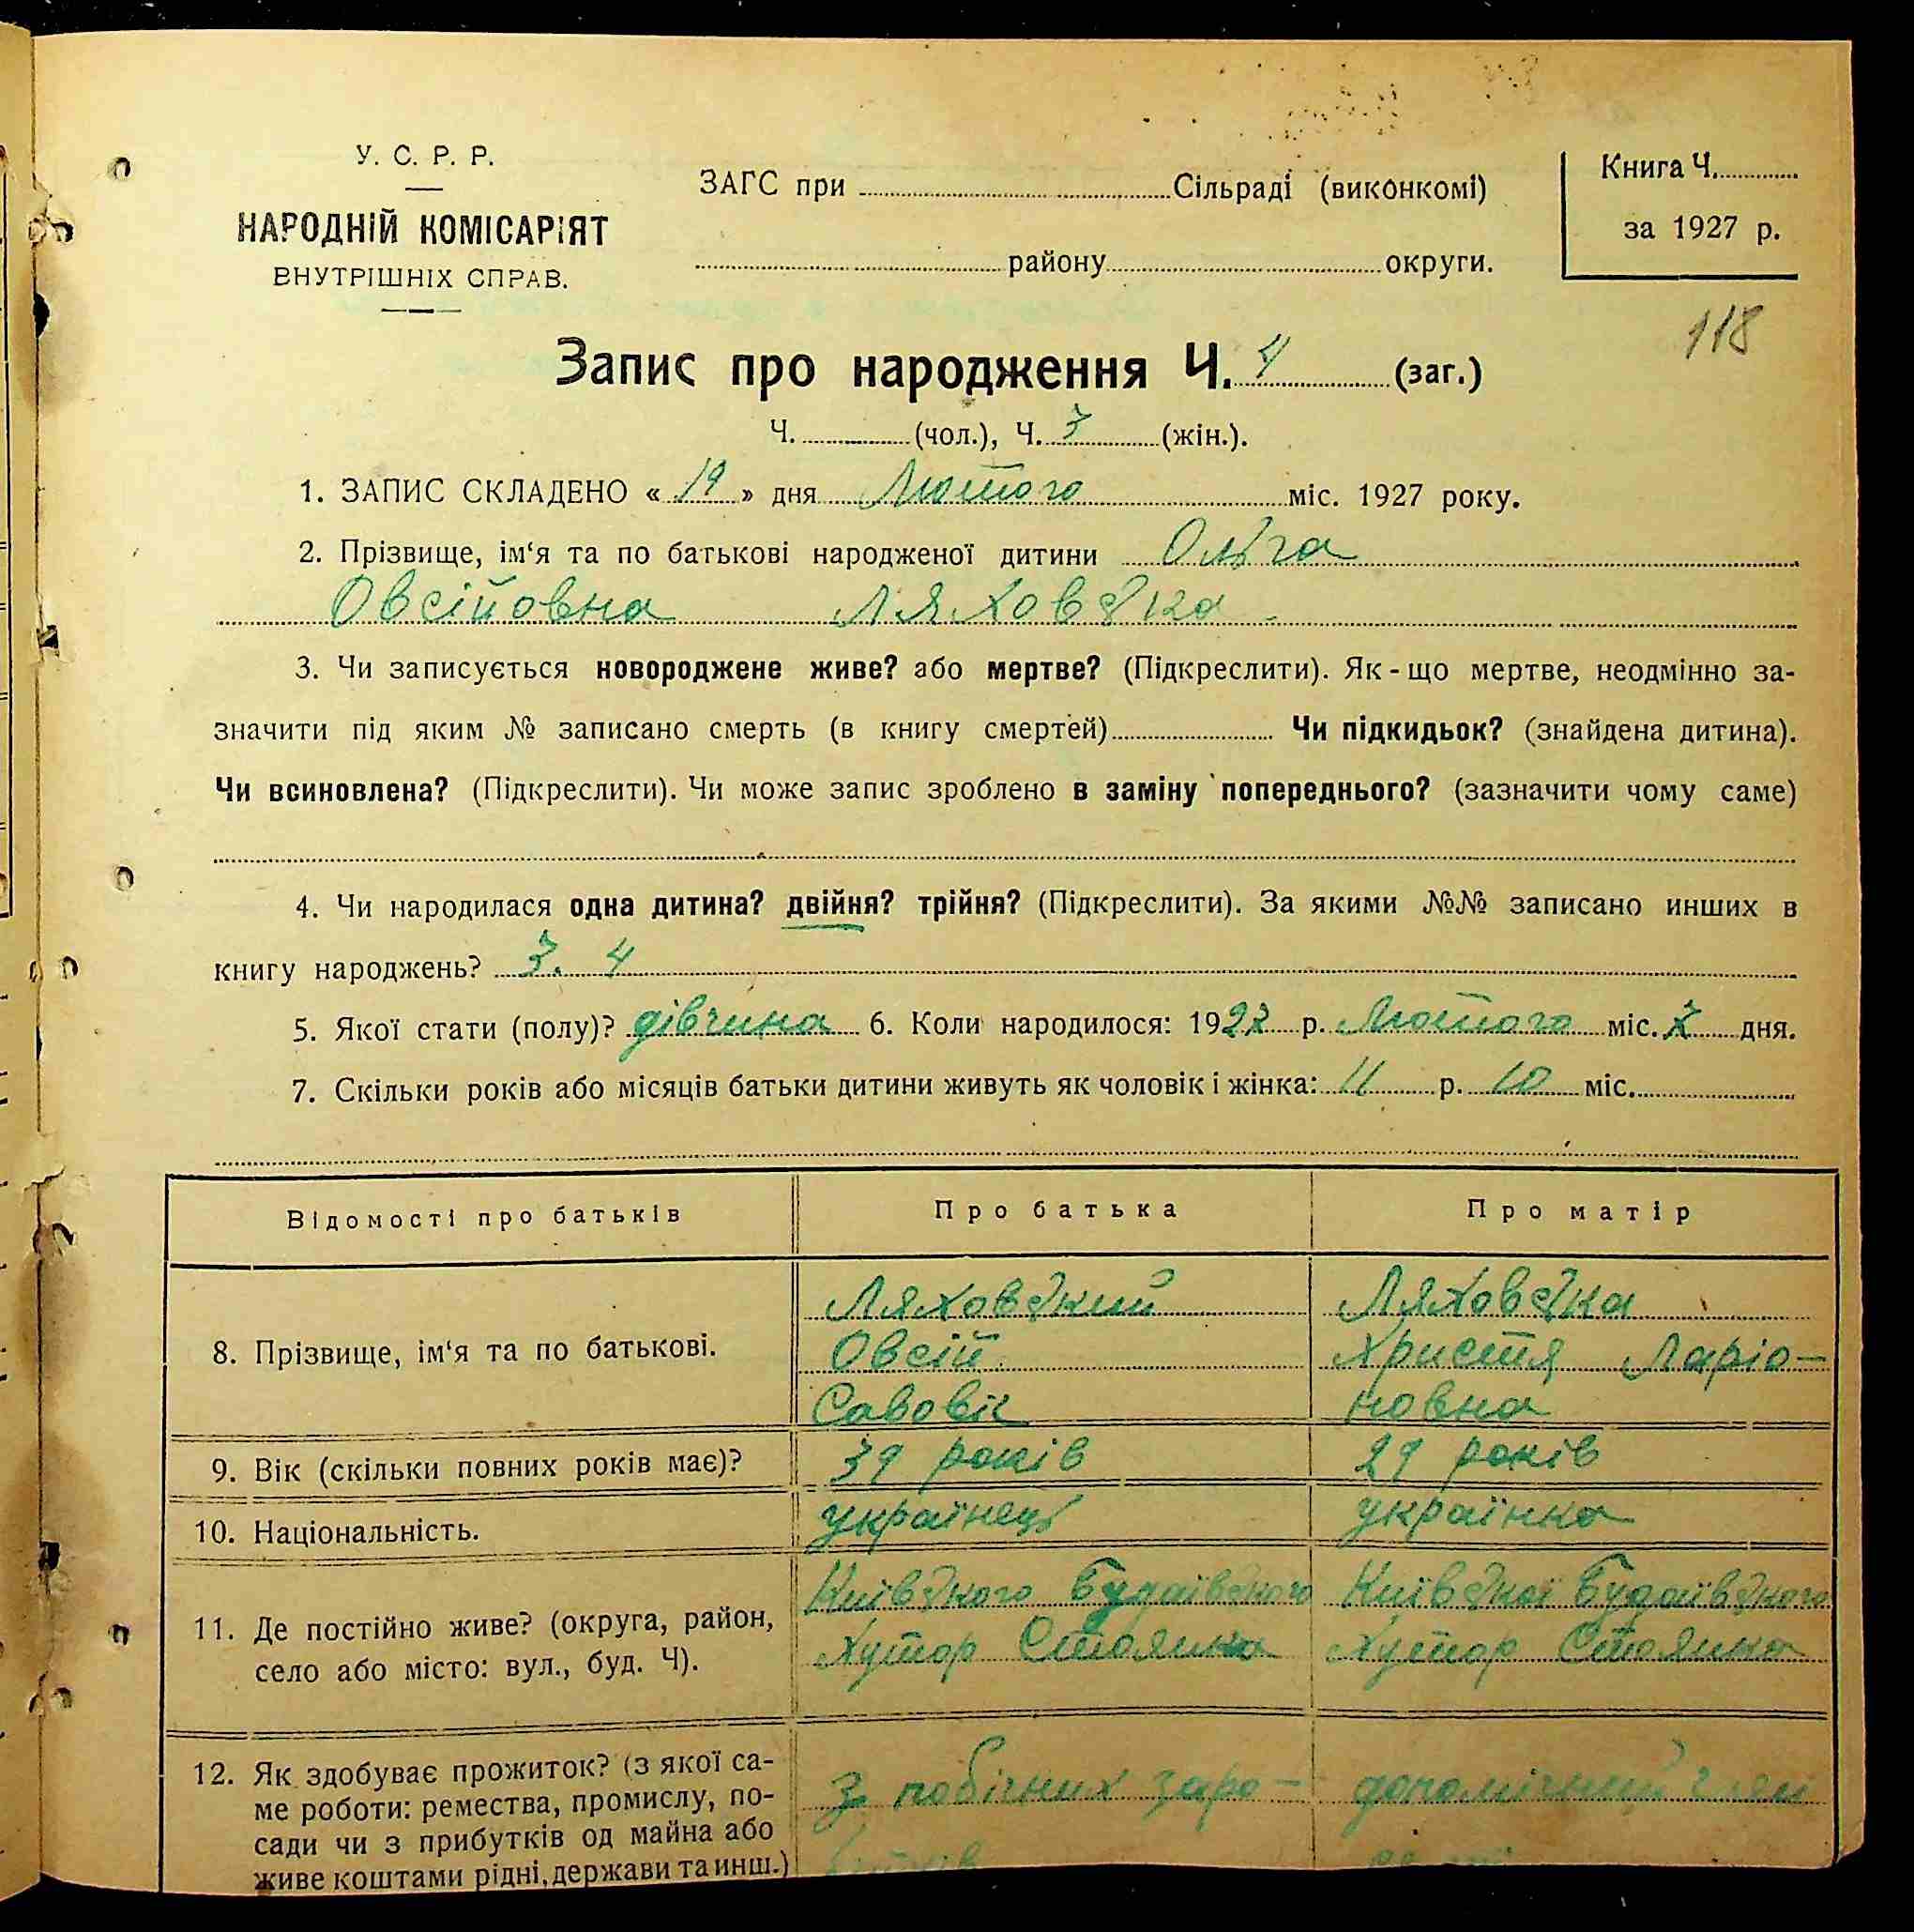 У. С. Р. Р.
НАРОДНІЙ КОМІСАРІЯТ
ВНУТРІШНІХ СПРАВ.
ЗАГС при Сільраді (виконкомі)
району округи.
Книга Ч.
за 1927 р.
118
Запис про народження Ч. 4 (заг.)
Ч. (чол.), Ч. 3 (жін.).
1. ЗАПИС СКЛАДЕНО « 19 » дня Лютого міс. 1927 року.
2. Прізвище, ім‘я та по батькові народженої дитини Ольга
Овсійовна Ляховська
3. Чи записується новороджене живе? або мертве? (Підкреслити). Як-що мертве, неодмінно за-
значити під яким № записано смерть (в книгу смертей) Чи підкидьок? (знайдена дитина).
Чи всиновлена? (Підкреслити). Чи може запис зроблено в заміну попереднього? (зазначити чому саме)
4. Чи народилася одна дитина? двійня? трійня? (Підкреслити). За якими №№ записано инших в
книгу народжень? 3. 4
5. Якої стати (полу)? дівчина 6. Коли народилося: 1927 р. Лютого міс. дня.
7. Скільки років або місяців батьки дитини живуть як чоловік і жінка: 11 р. 10 міс.
Відомості про батьків
Про батька
Про матір
8. Прізвище, ім‘я та по батькові.
Ляховський
Овсій
Савовіч
Ляховська
Христя Ларіо-
новна
9. Вік (скільки повних років має)?
39 років
29 років
10. Національність.
українець
українка
11. Де постійно живе? (округа, район,
село або місто: вул., буд. Ч).
Київського Будаївського
Хутор Стоянка
Київської Будаївського
Хутор Стоянка
12. Як здобуває прожиток? (з якої са-
ме роботи: ремества, промислу, по-
сади чи з прибутків од майна або
живе коштами рідні, держави та инш.)
З побічних заро-
бітків
допомічний член